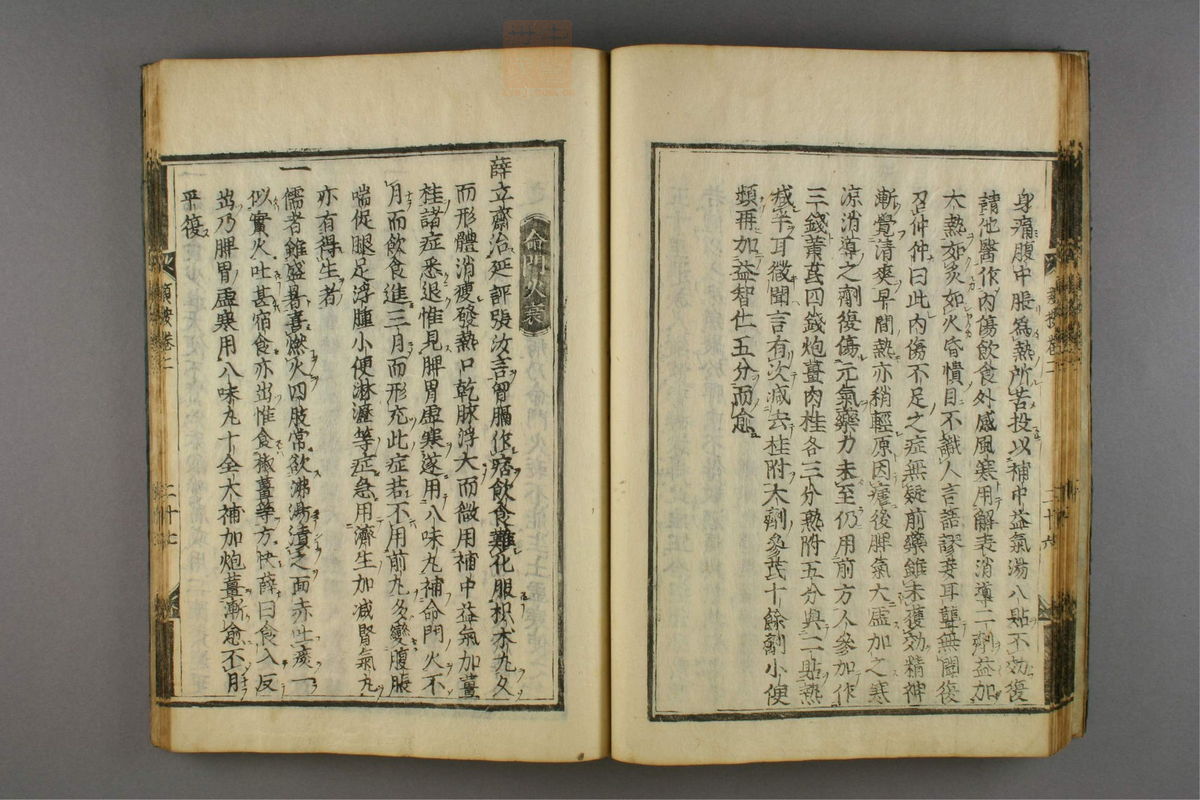 身痛腹中脹為熱所苦投以補中益氣湯八貼不効復
請他醫作內傷飲食外感風寒用解表消導二劑益加
大熱如炙如火昏憒目不識人言語謬妄耳聾無聞復
召仲仲曰此內傷不足之症無疑前藥雖未獲効精神
漸覺清爽早間熱亦稍輕原因瘧後脾氣大虛加之寒
涼消導之劑復傷元氣藥力未至仍用前方人參加作
三錢黃芪四錢炮薑肉桂各三分熟附五分與二貼熱
減半耳微聞言有次減去桂附大劑參芪十餘劑小便
頻再加益智仁五分而愈
類按卷二
二十六
命門火衰
薛立齋治延評張汝言胃膈作痞飲食難化服枳朮丸久
而形體消瘦發熱口乾脉浮大而微用補中益氣加薑
桂諸症悉退惟見脾胃虛寒遂用八味丸補命門火不
月而飲食進三月而形充此症若不用前丸多變腹脹
喘促腿足浮腫小便淋瀝等症急用濟生加減腎氣丸
亦有得生者
一儒者雖盛暑喜燃火四肢常欲沸湯漬之面赤吐痰一
似實火吐甚宿食亦出惟食椒薑等方快薛曰食入反
出乃脾胃虛寒用八味丸十全大補加炮薑漸愈不月
平復
類按卷二
二十七